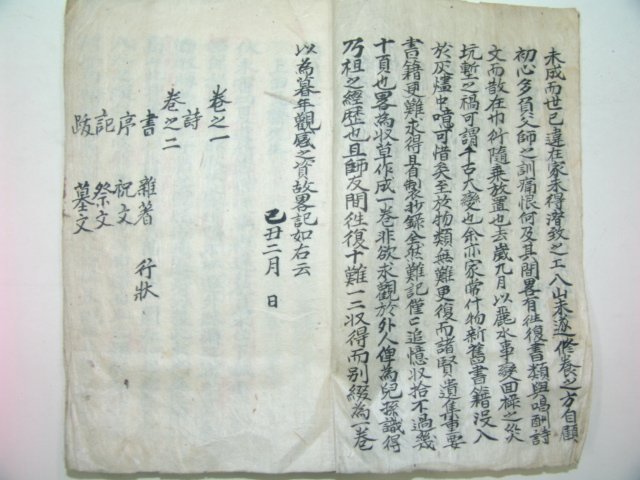 未成而世已違在家未得潛致之工入山未遂修養之方自顧
初心多負父師之訓痛恨何及其間畧有往復書類與鳴酬詩
文而散在巾衍隨乘放置也去歲九月以麗水事發回祿之災
坑塹之禍可謂千古大變也余亦家常什物新舊書籍沒入
於灰燼中噴可惜矣至於物類無難更復而諸賢遺集重要
書籍更難求得且自製抄録全然難記僅〻追憶收拾不過幾
十頁也畧為收草作成一卷非欲求觀於外人俾為兒孫識得
乃祖之經歷也且師友間往復十難一二收得而別綴為一卷
以為暮年觀感之資故畧記如右云
己丑二月 日
卷之一
詩
卷之二
書 雜著 行狀
序 祝文
記 祭文
跋 墓文